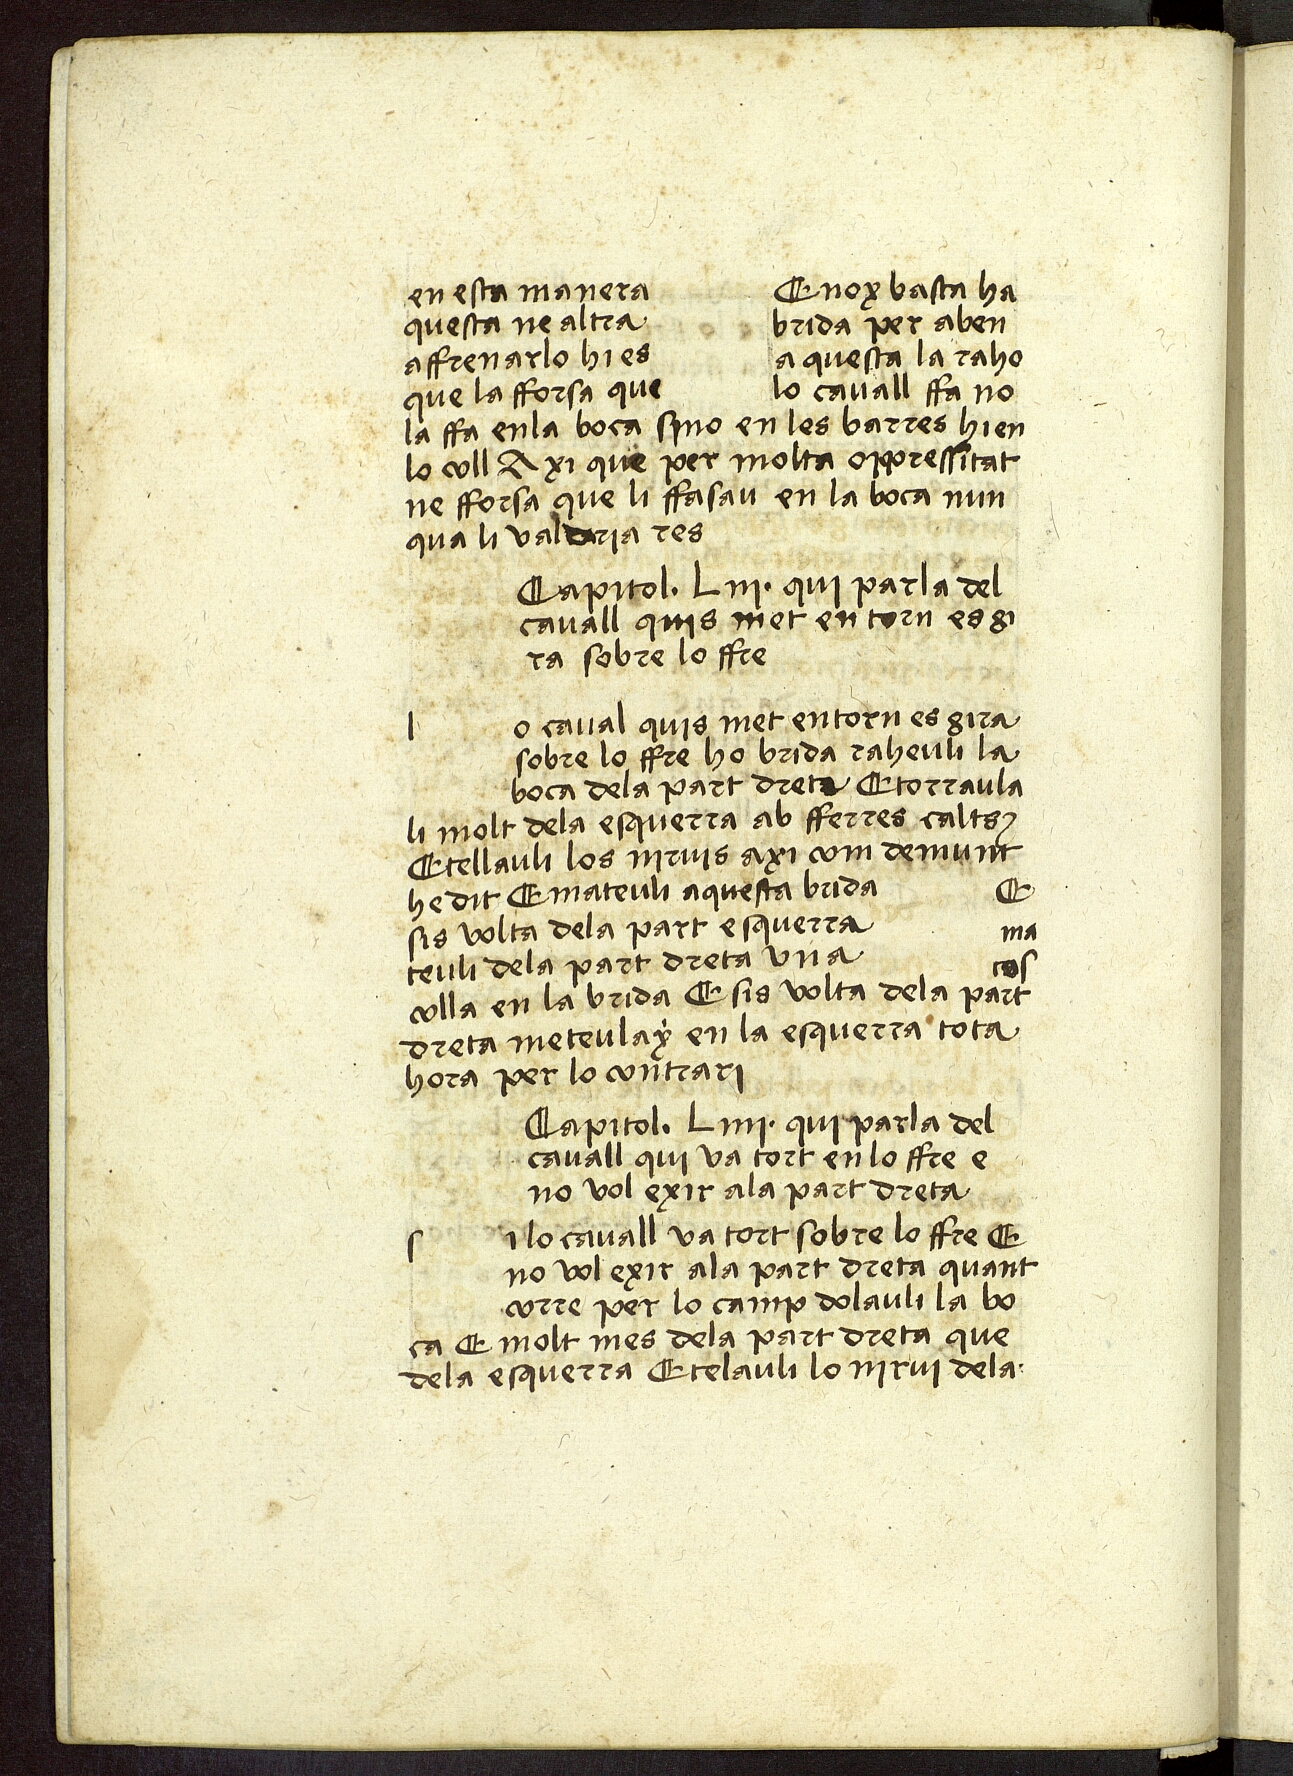 en esta manera E nox basta ha
questa ne altra brida per aben
affrenarlo hi es aquesta la raho
que la fforsa que lo cavall ffa no
la ffa enla boca syno en les barres hi en
lo coll Axi que per molta oppressitat
ne fforsa que li ffasau en la boca nun
qua li valdria res
Capitol. Liij. qui parla del
cauall quis met en torn es gi
ra sobre lo ffre
l o caual quis met entorn es gira
sobre lo ffre ho brida raheuli la
boca dela part dreta E torraula
li molt dela esquerra ab fferres calts
E tellauli los niruis axi com demunt
he dit E mateuli aquesta brida E
sis volta dela part esquerra ma
teuli dela part dreta una cos
colla en la brida E sis volta dela part
dreta meteulay en la esquerra tota
hora per lo contrari
Capitol. Liiij. qui parla del
cauall qui va tort en lo ffre e
no vol exir ala part dreta
s i lo cauall va tort sobre lo ffre E
no vol exir ala part dreta quant
corre per lo camp dolauli la bo
ca E molt mes dela part dreta que
dela esquerra E telauli lo nirui dela